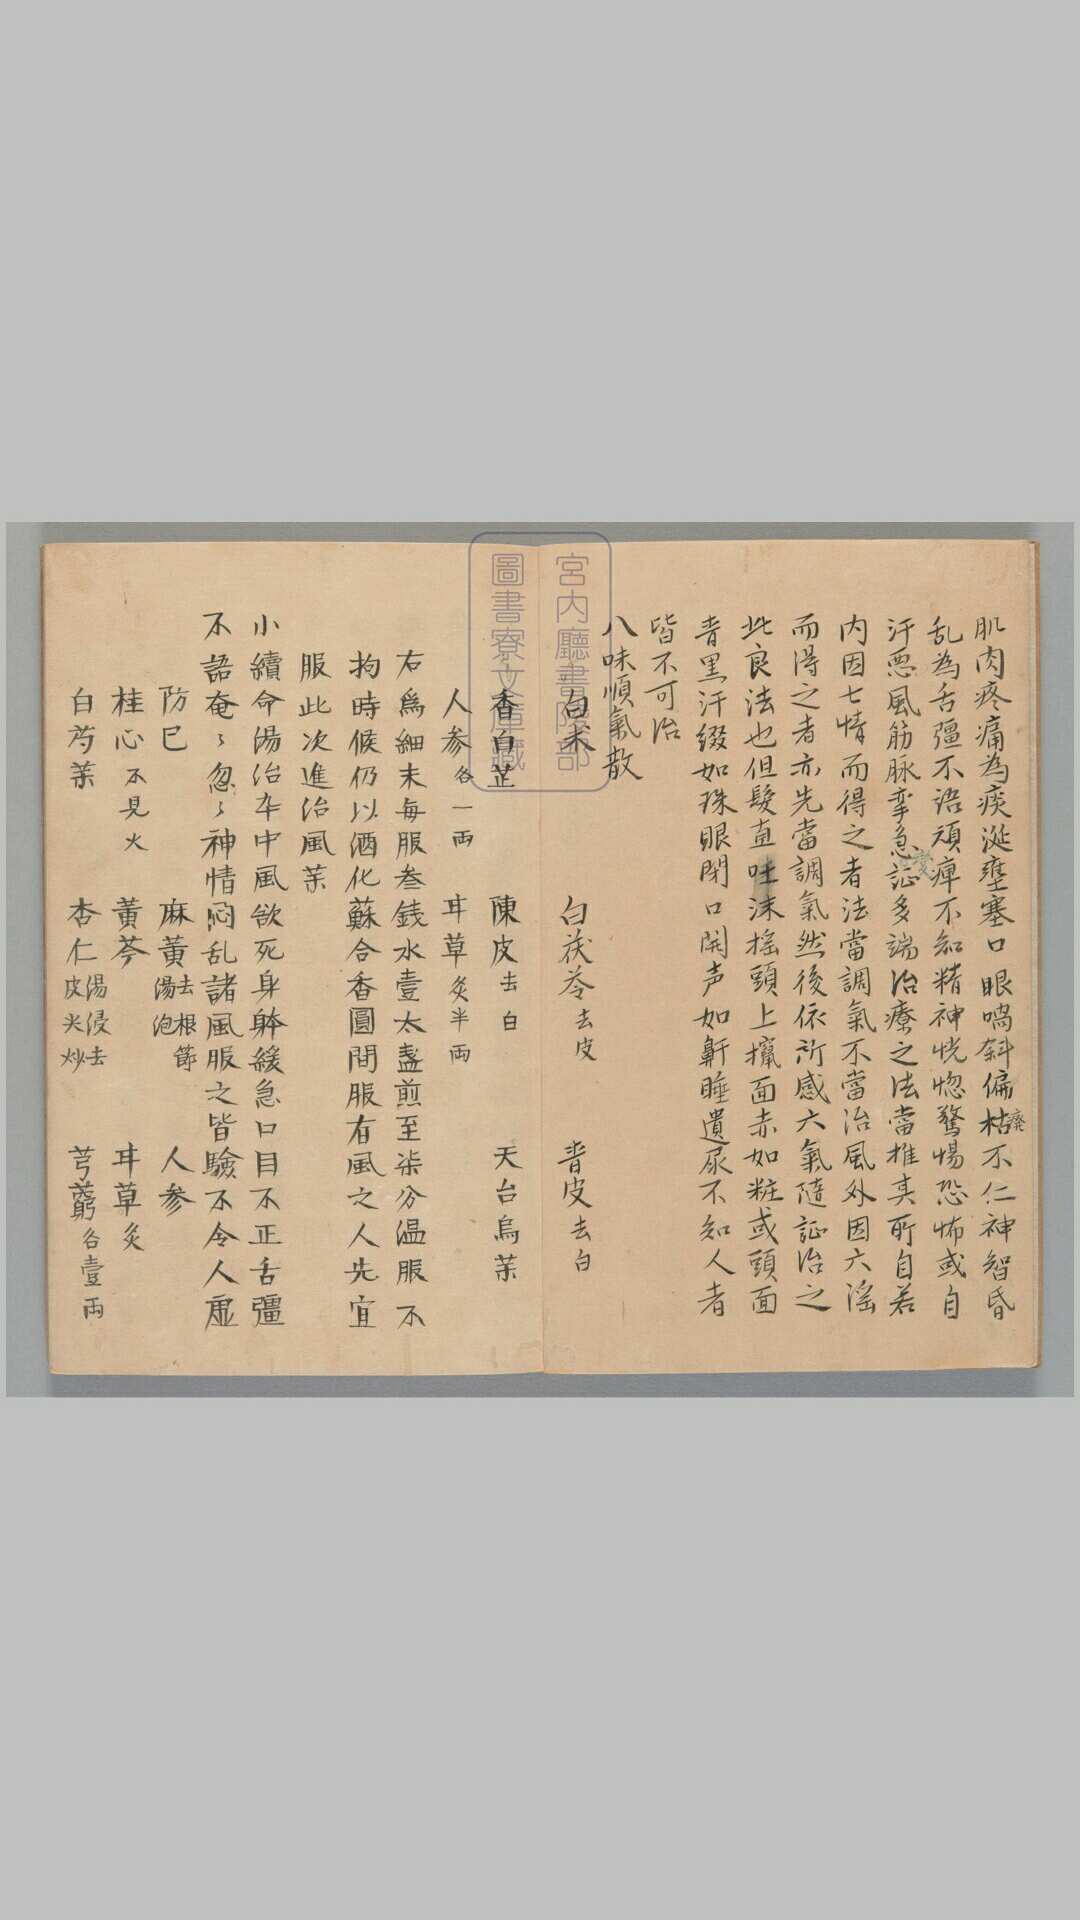 肌肉疼痛為痰涎壅塞口眼喎斜偏枯不仁神智昏
廃
乱為舌彊不语頑痺不知精神恍惚驚惕恐怖或自
汗悪風筋脉挛急証多端治療之法當推其所自若
内因七情而得之者法當調氣不當治風外因六滛
而得之者亦先當調氣然後依所感六氣隨証治之
此良法也但髮直吐沫揺頭上攛面赤如粧或頭面
青黒汗綴如珠眼閉口開声如鼾睡遺尿不知人者
皆不可治
八味順氣散
白术 白茯苓去皮 青皮去白
香白芷 陳皮去白 天台烏茉
人参各一両 耳草炙半両
右為細末每服叁錢水壹太盞煎至柒分温服不
拘時候仍以酒化蘇合香圓間服有風之人先宜
服此次進治風茉
小續命湯治卒中風欲死身躰緩急口目不正舌彊
不語奄々忽々神情悶乱諸風服之皆驗不令人虛
防已 麻黃去根節湯泡 人参
桂心不見火 黃芩 耳草炙
白芍茉 杏仁湯浸去皮尖炒 芎藭各壹両
宮内廳書陵部
圖書寮文庫藏